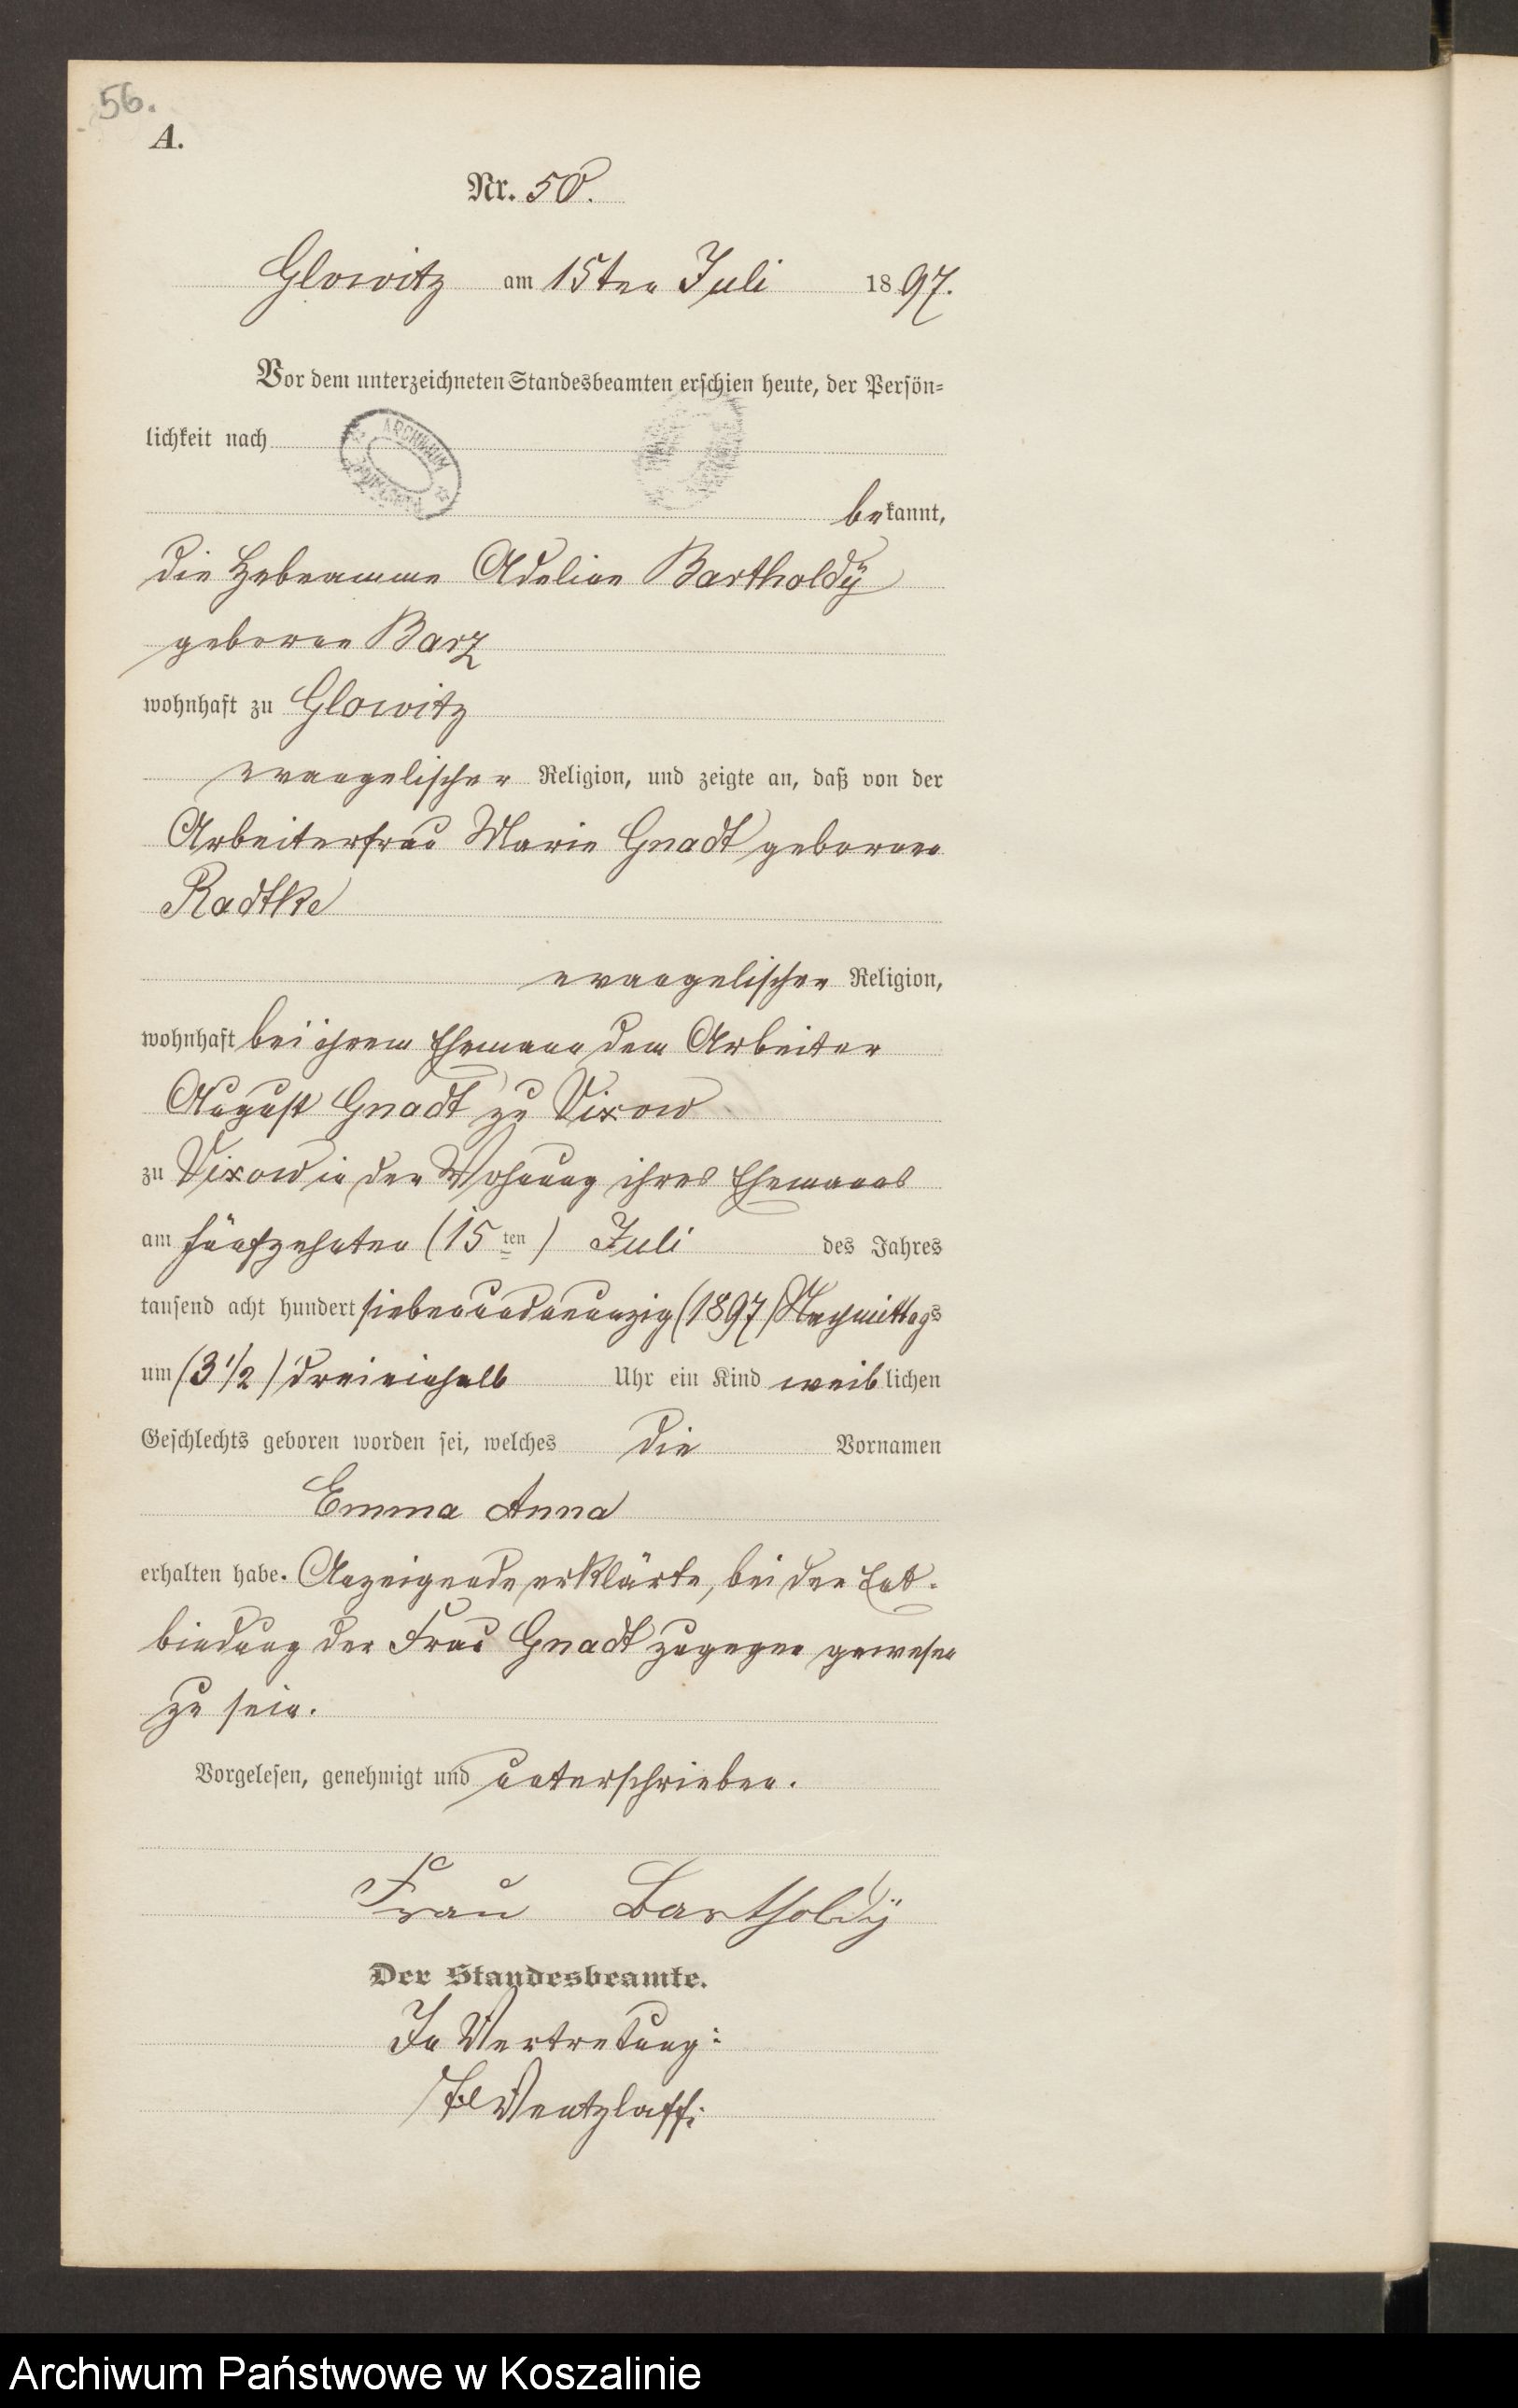 56.
A.
Nr. 50.
Glowitz am 15ten Juli 1897.
Vor dem unterzeichneten Standesbeamten erschien heute, der Persön=
lichkeit nach
ARCHIWUM
bekannt,
die Hebeamme Adeline Bartholdÿ
geborene Barz
wohnhaft zu Glowitz
evangelischer Religion, und zeigte an, daß von der
Arbeiterfrau Marie Gnadt geborenen
Radtke
evangelischer Religion,
wohnhaft bei ihrem Ehemann dem Arbeiter
August Gnadt zu Vixow
zu Vixow in der Wohnung ihres Ehemanns
am fünfzehnten (15ten) Juli des Jahres
tausend acht hundert siebenundneunzig (1897) Nachmittags
um (3 1/2) dreieinhalb Uhr ein Kind weiblichen
Geschlechts geboren worden sei, welches die Vornamen
Emma Anna
erhalten habe. Anzeigende erklärte, bei der Ent-
bindung der Frau Gnadt zugegen gewesen
zu sein.
Vorgelesen, genehmigt und unterschrieben.
Frau Bartholdÿ
Der Standesbeamte.
In Vertretung:
Wentzlaff.
Archiwum Państwowe w Koszalinie